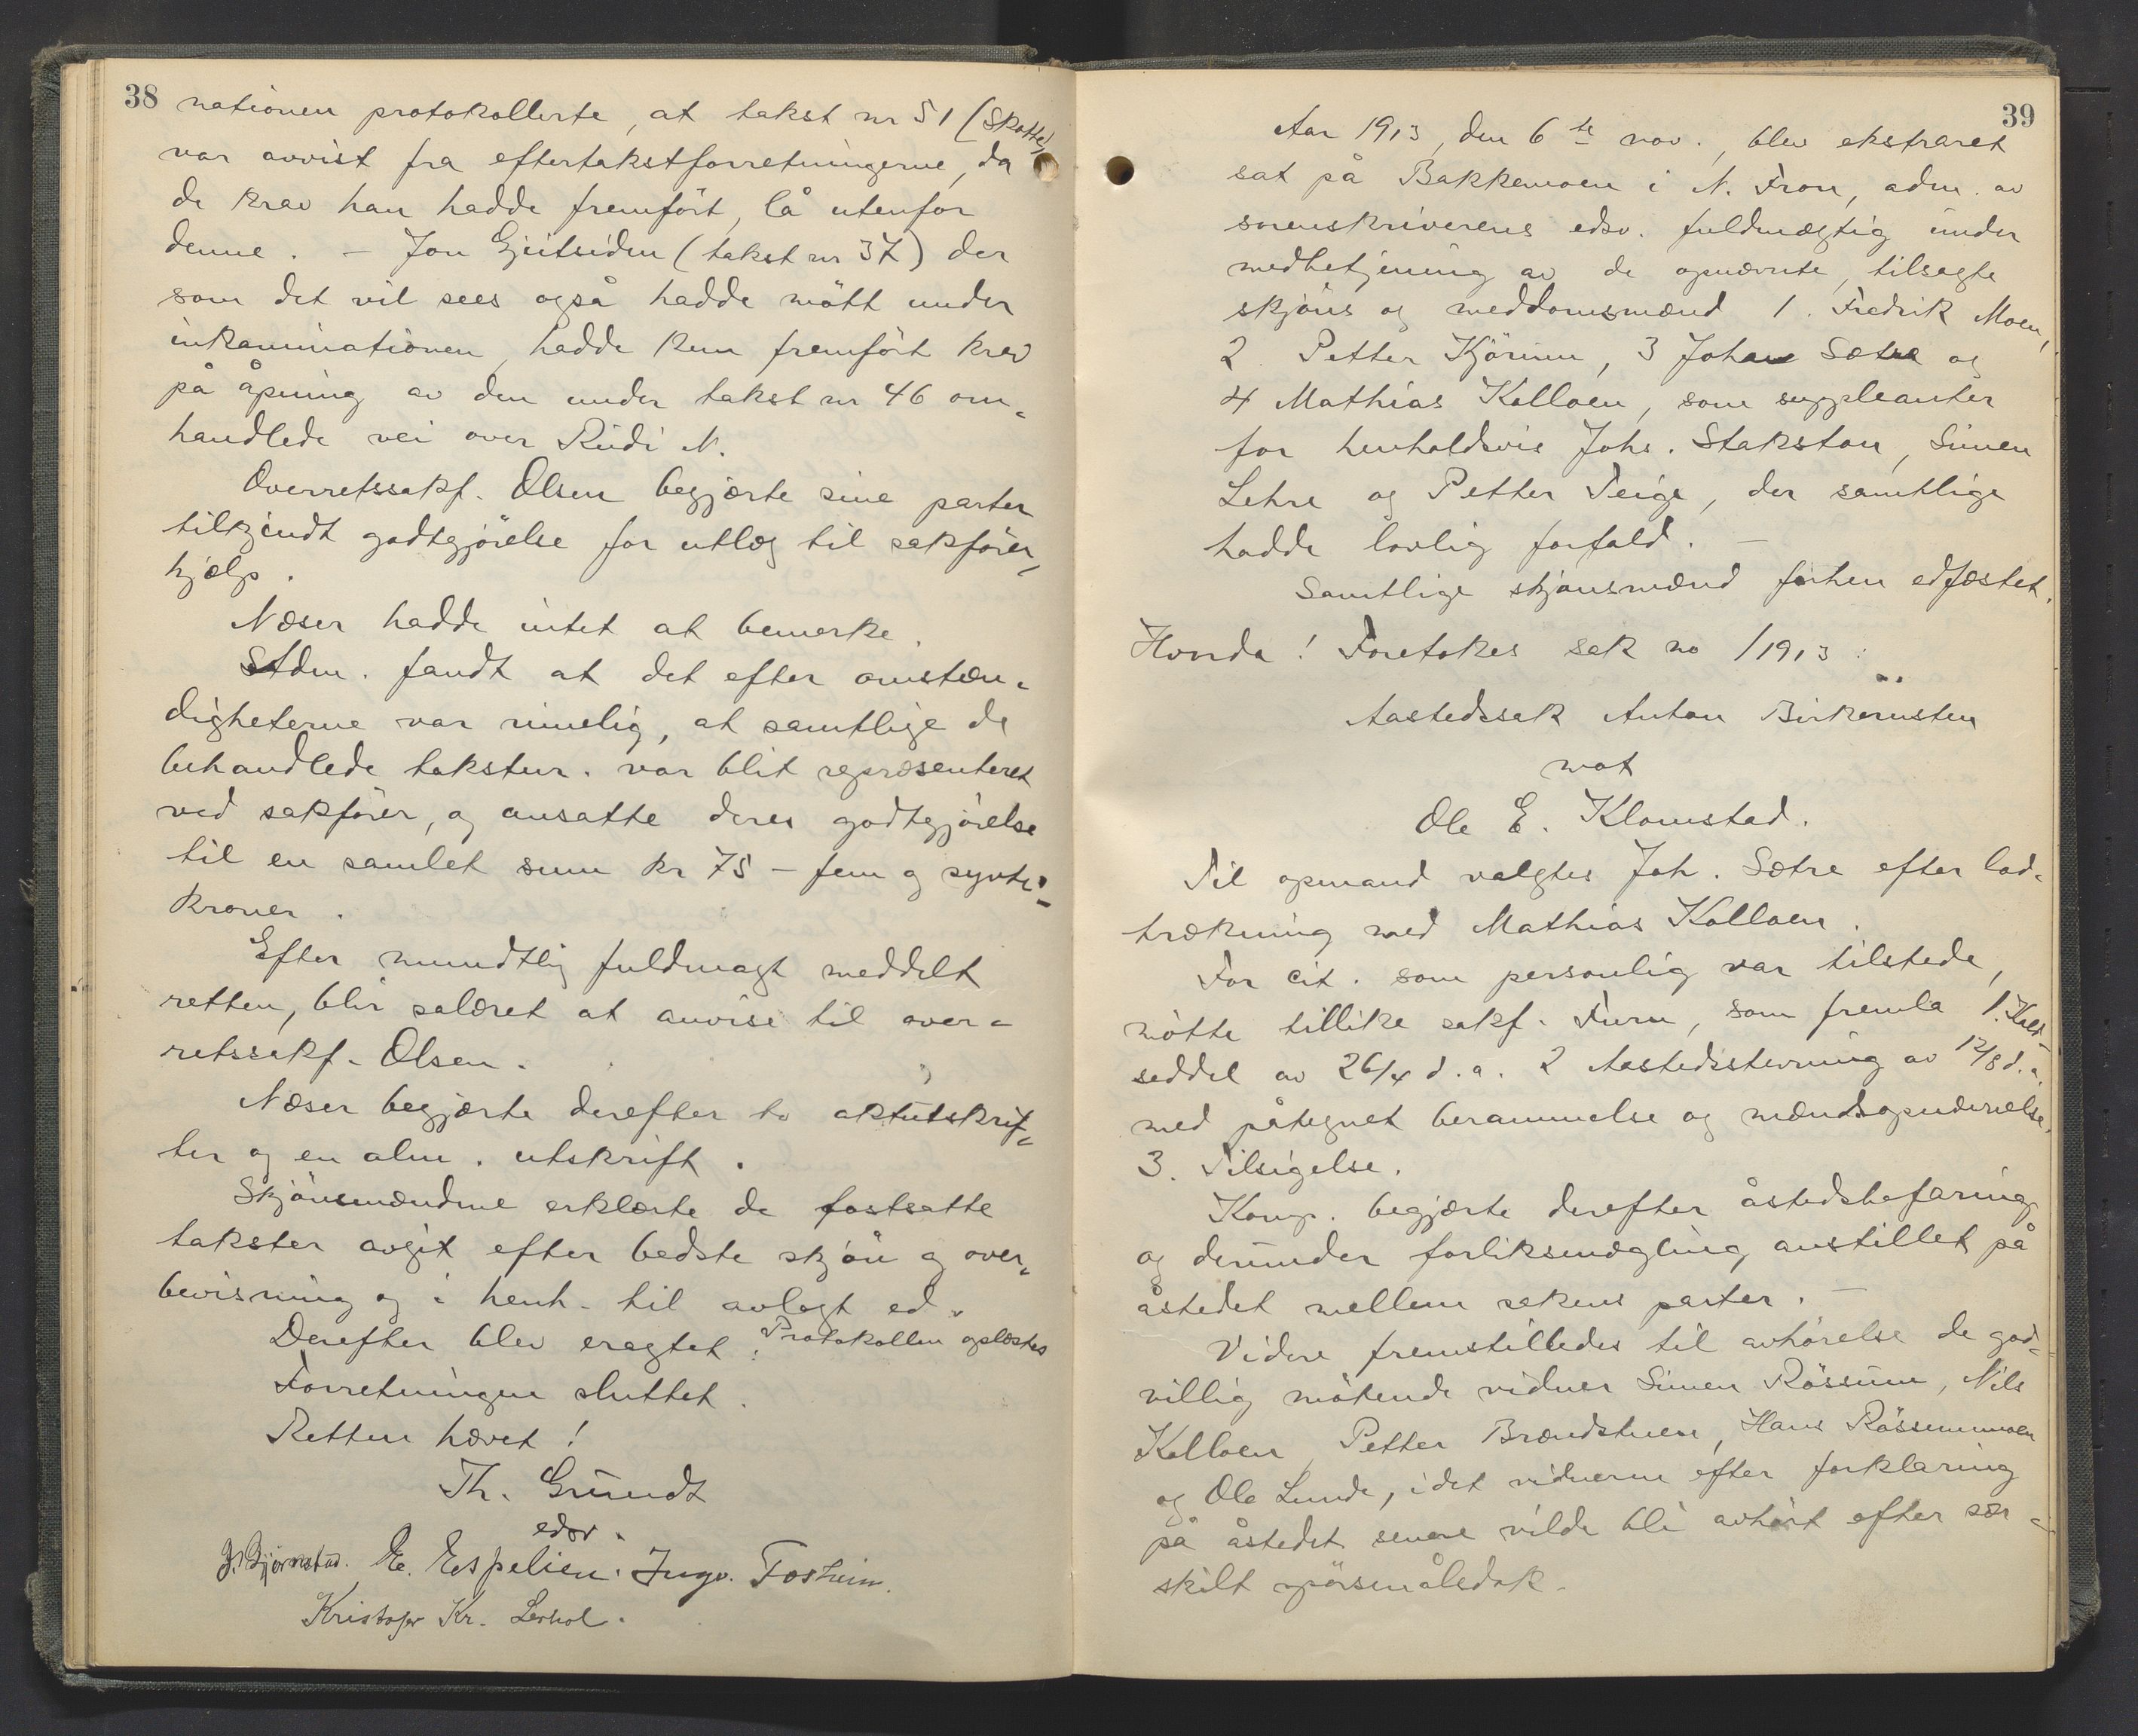 38
nationen protokollerte, at takst nr 51 (Skotte)
var avvist fra eftertakstforretningerne, da
de krav han hadde fremført, lå utenfor
denne. – Jon Gjeitsiden (takst nr 37) der
som det vil sees også hadde møtt under
inkaminationen, hadde kun fremført krav
på åpning av den under takst nr 46 om-
handlede vei over Rudi N.
Overretssakf. Olsen begjærte sine parter
tilkjendt godtgjørelse for utlæg til sakfører-
hjælp.
Næser hadde intet at bemerke.
Adm. fandt at det efter omstæn-
digheterne var rimelig, at samtlige de
behandlede takstnr. var blit repræsenteret
ved sakfører, og ansatte deres godtgjørelse
til en samlet sum kr 75 – fem og sytti –
kroner.
Efter mundtlig fuldmagt meddelt
retten, blir salæret at anvise til over-
retssakf. Olsen.
Næser begjærte derefter to aktutskrif-
ter og en alm. utskrift.
Skjønsmændene erklærte de fastsatte
takster avgit efter bedste skjøn og over-
bevisning og i henh. til avlagt ed.
Derefter blev eragtet: Protokollen oplæstes
Forretningen sluttet.
Retten hævet!
Th. Grundt
edsv.
J. Bjørnstad. E. Espelien. Ingv. Fosheim.
Kristofer Kr. Lerhol.
39
Aar 1913, den 6te nov., blev ekstraret
sat på Bakkemoen i N. Fron, adm. av
sorenskriverens edsv. fuldmægtig under
medbetjening av de opnævnte, tilsagte
skjøns og meddomsmænd 1. Fredrik Moen,
2 Petter Kjørum, 3 Johan Sætre og
4 Mathias Kolloen, som suppleanter
for henholdsvis Johs. Stakston, Simen
Lehre og Petter Teige, der samtlige
hadde lovlig forfald. –
Samtlige skjønsmænd forhen edfæstet.
Hvorda! Foretokes sak no /1913:
Aastedssak Anton Birkerusten
mot
Ole E. Klomstad.
Til opmand valgtes Joh. Sætre efter lod-
trækning med Mathias Kolloen.
For cit. som personlig var tilstede,
møtte tillike sakf. Furu, som fremla 1. Kald-
seddel av 26/4 d.a. 2 Aastedsstevning av 12/8 d.a.
med påtegnet berammelse og mændsopnævnelse.
3. Tilsigelse.
Komp. begjærte derefter åstedsbefaring
og derunder forliksmægling, anstillet på
åstedet mellem sakens parter. –
Videre fremstilledes til avhørelse de god-
villig møtende vidner Simen Røssum, Nils
Kolloen, Petter Brændstuen, Hans Røssummoen
og Ole Lunde, idet vidnerne efter forklaring
på åstedet senere vilde bli avhørt efter sær-
skilt spørsmålsdok.